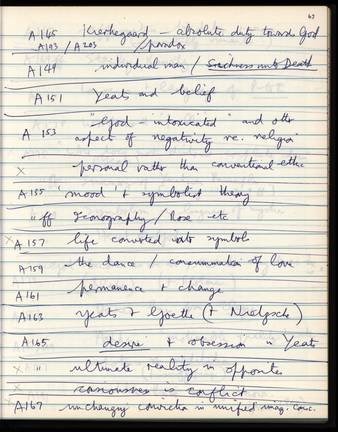 63
A145 Kierkegaard – absolute duty towards God
A193 / A203 / paradox
A149 individual man / Sickness unto Death
A151 Yeats and belief
"God – intoxicated" and other
A153 aspect of negativity re. religion
x personal rather than conventional ethic
A155 'mood' & symbolist theory
" ff Iconography / Rose etc
x A157 life converted into symbols
A159 the dance / consummation of love
A161 permanence & change
A163 Yeats & Goethe (& Nietzsche)
A165 desire & obsession in Yeats
x " ultimate reality in opposites
x consciousness is conflict
A167 unchanging conviction in unified imag. conc.